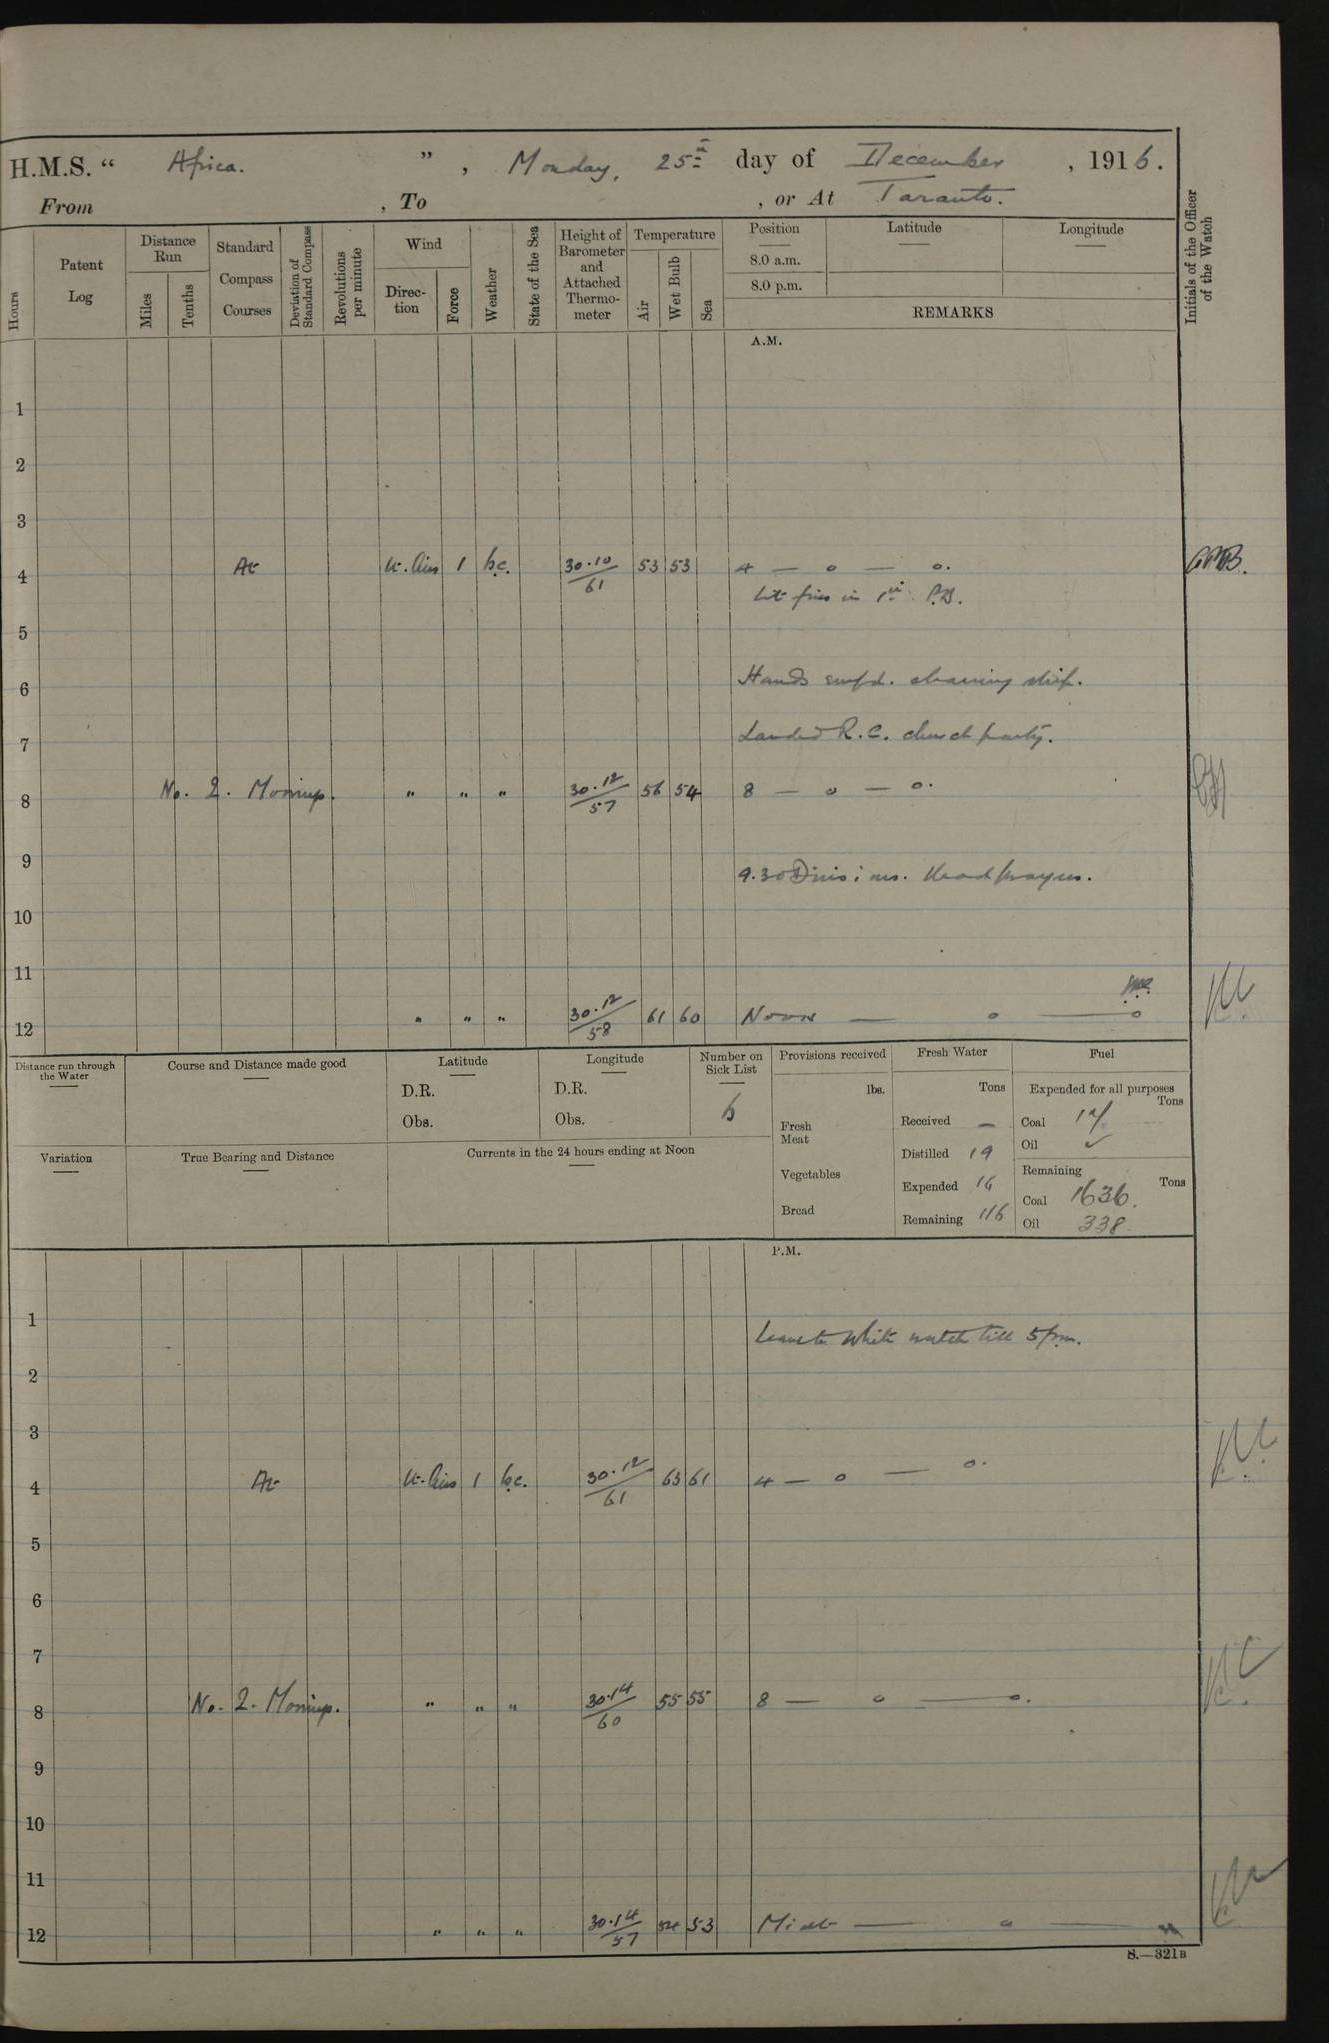 H.M.S. “ Africa. ” , Monday, 25th day of December , 1916.
From , To , or At Taranto.
Hours
Patent Log
Distance Run
Miles
Tenths
Standard Compass Courses
Deviation of Standard Compass
Revolutions per minute
Wind
Direction
Force
Weather
State of the Sea
Height of Barometer and Attached Thermometer
Temperature
Air
Wet Bulb
Sea
Position
8.0 a.m.
8.0 p.m.
Latitude
Longitude
REMARKS
Initials of the Officer of the Watch
A.M.
1
2
3
4 At Lt. Airs 1 b.c. 30.10/61 53 53 4 — o — o.
Lit fires in 1st P.B.
5
6 Hands empd. cleaning ship.
7 Landed R.C. church party.
8 No. 2. Moorings. " " " 30.12/57 56 54 8 — o — o.
9
9.30 Divisions. Read prayers.
10
11
12 " " " 30.12/58 61 60 Noon — o — o
Distance run through the Water
Course and Distance made good
Latitude
D.R.
Obs.
Longitude
D.R.
Obs.
Number on Sick List
6
Provisions received
lbs.
Fresh Meat
Vegetables
Bread
Fresh Water
Tons
Received —
Distilled 19
Expended 16
Remaining 116
Fuel
Expended for all purposes
Tons
Coal 14
Oil ✓
Remaining
Tons
Coal 1636.
Oil 338
Variation
True Bearing and Distance
Currents in the 24 hours ending at Noon
P.M.
1
Leave to White watch till 5 pm.
2
3
4 At Lt. Airs 1 b.c. 30.12/61 63 61 4 — o — o.
5
6
7
8 No. 2. Moorings. " " " 30.14/60 55 55 8 — o — o.
9
10
11
12 " " " 30.14/57 54 53 Midt — o —
S.—321B